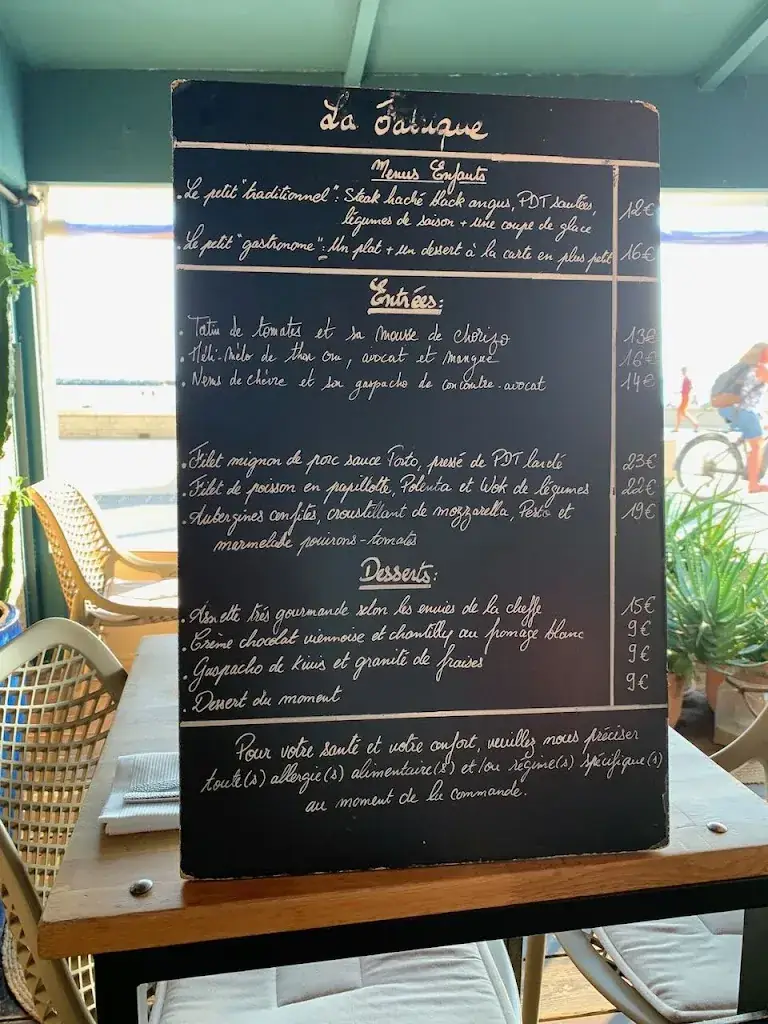 La Fabrique
Menus Enfants
. Le petit "traditionnel": Steak haché black angus, PDT sautées, 12€
légumes de saison + une coupe de glace
. Le petit "gastronome": Un plat + un dessert à la carte en plus petit 16€
Entrées:
. Tatin de tomates et sa mousse de chorizo 13€
. Méli-mélo de thon cru, avocat et mangue 16€
. Nems de chèvre et son gaspacho de concombre-avocat 14€
. Filet mignon de porc sauce Porto, pressé de PDT lardé 23€
. Filet de poisson en papillotte, Polenta et Wok de légumes 22€
. Aubergines confites, croustillant de mozzarella, Pesto et 19€
marmelade poivrons-tomates
Desserts:
. Assiette très gourmande selon les envies de la cheffe 15€
. Crème chocolat viennoise et chantilly au fromage blanc 9€
. Gaspacho de kiwis et granité de fraises 9€
. Dessert du moment 9€
Pour votre santé et votre confort, veuillez nous préciser
toute(s) allergie(s) alimentaire(s) et/ou régime(s) spécifique(s)
au moment de la commande.